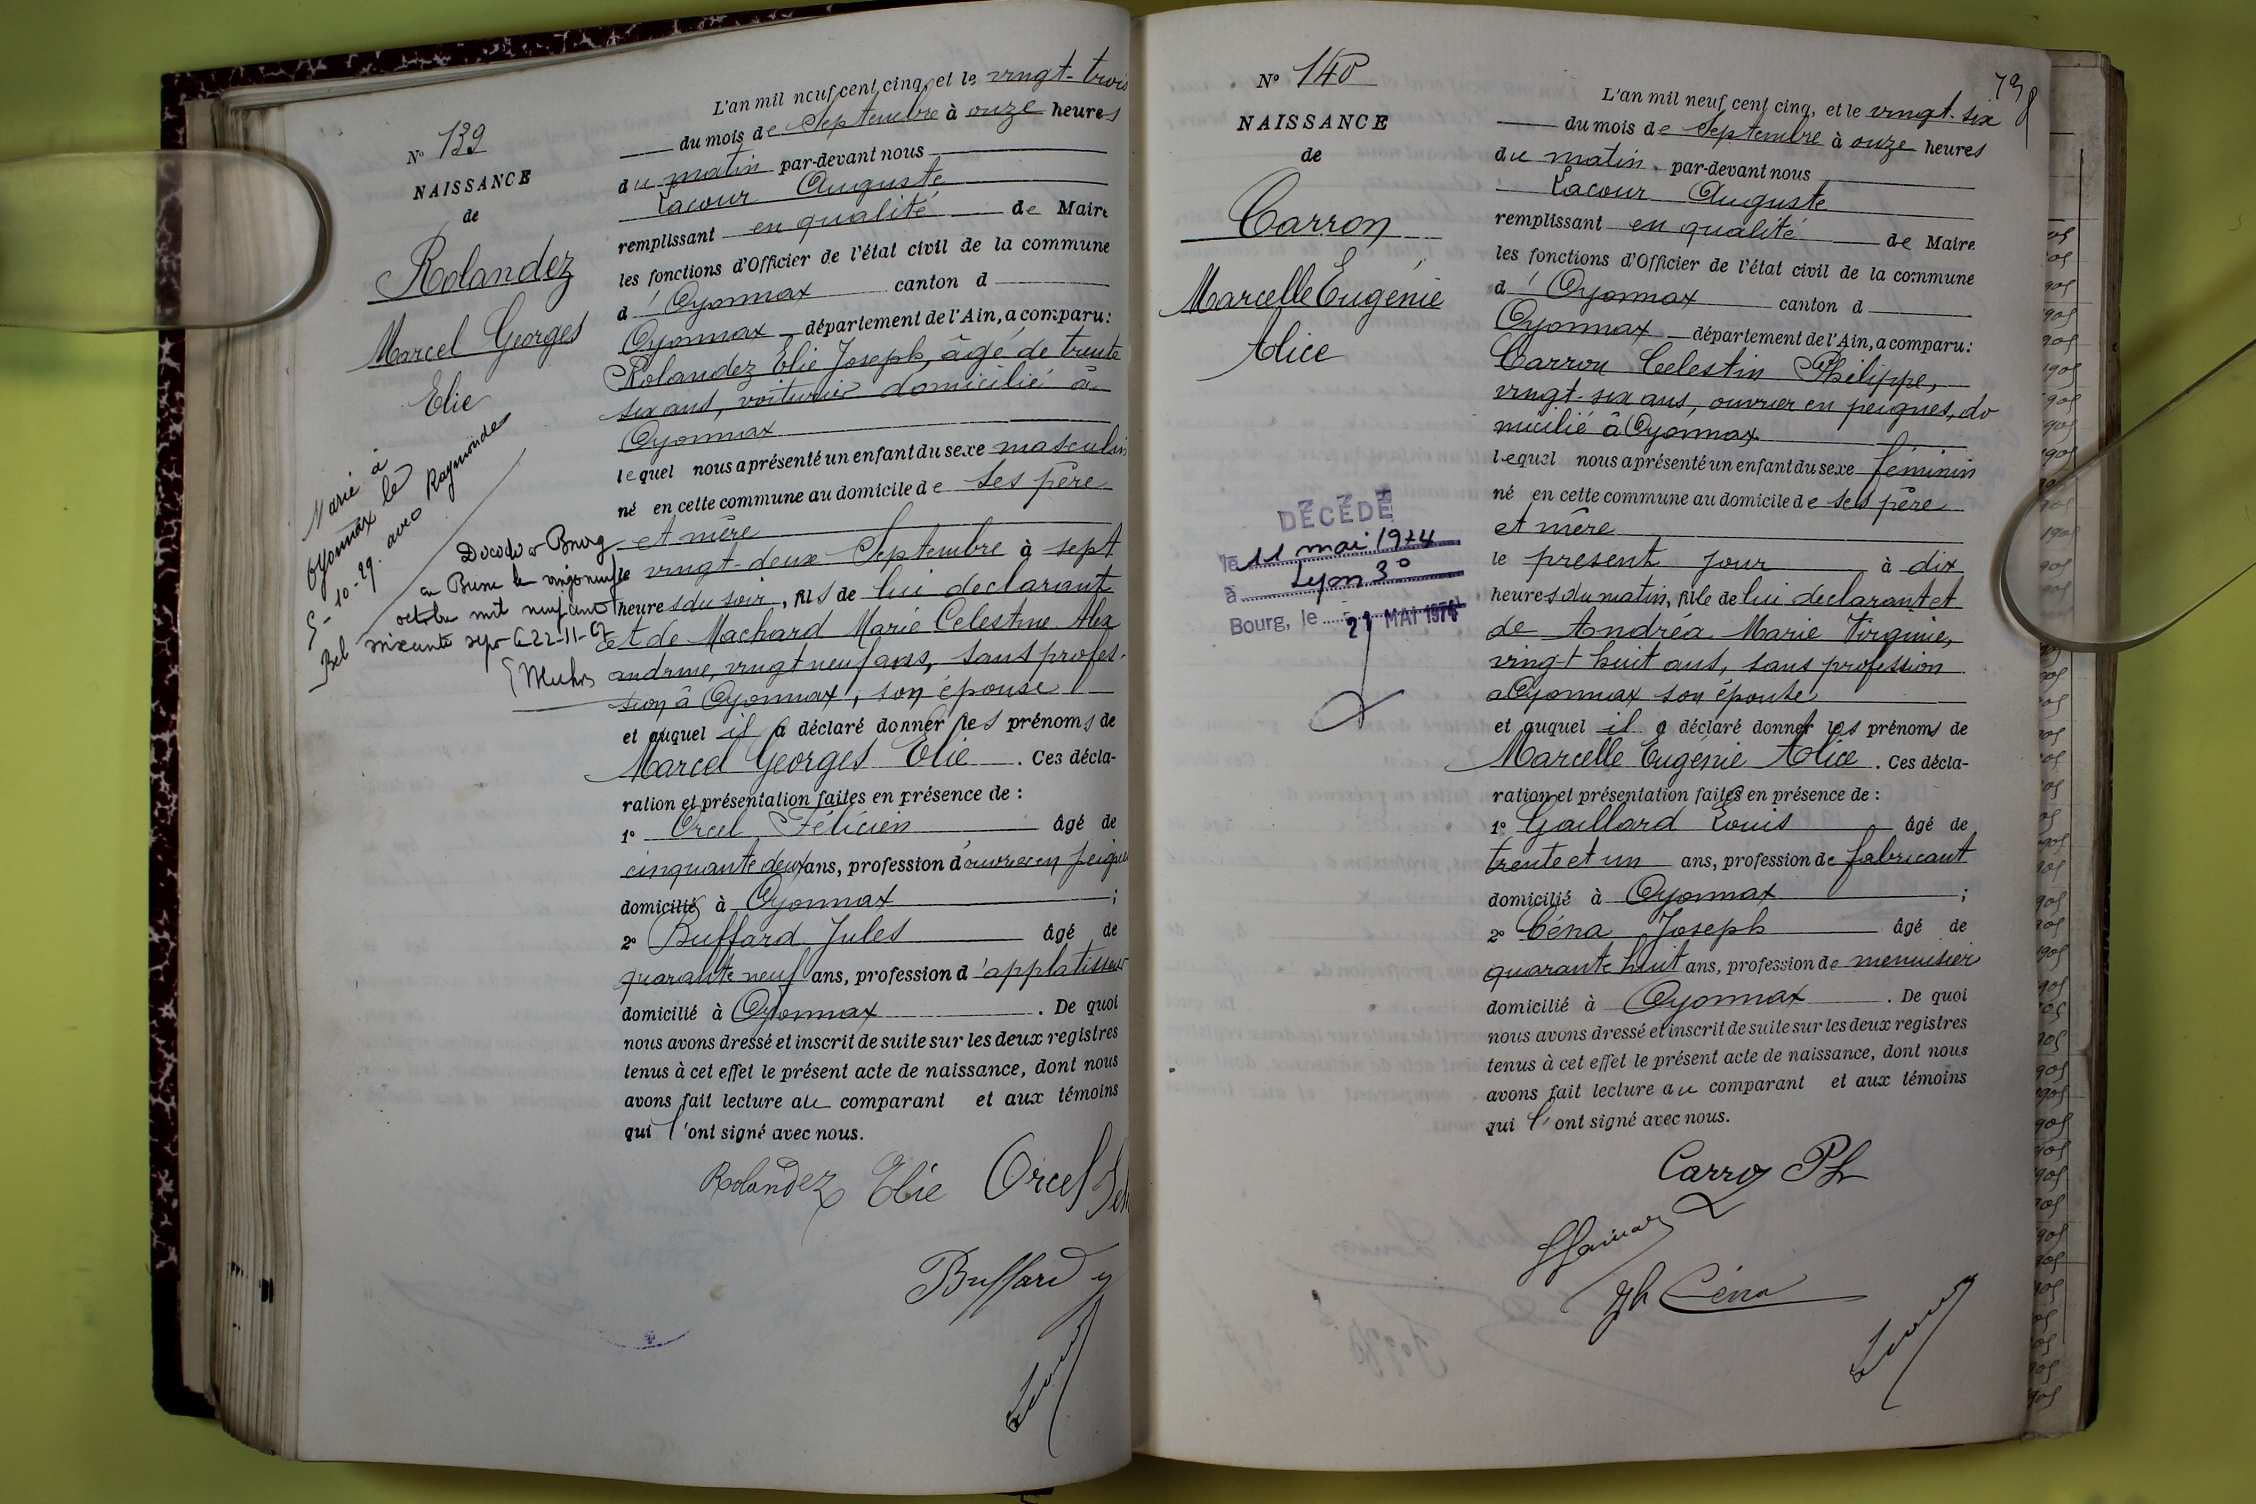 N° 139
NAISSANCE
de
Rolandez
Marcel Georges
Elie
Marié à
Oyonnax le
5-10-29. avec Raymonde
Bel
octobre mil neuf cent
L'an mil neuf cent cinq, et le vingt-trois
du mois de Septembre à onze heures
du matin par-devant nous
Lacour Auguste
remplissant en qualité de Maire
les fonctions d'Officier de l'état civil de la commune
d'Oyonnax canton d
Oyonnax département de l'Ain, a comparu:
Rolandez Elie Joseph, âgé de trente
six ans, voiturier domicilié à
Oyonnax
lequel nous a présenté un enfant du sexe masculin
né en cette commune au domicile de ses père
et mère
le vingt-deux Septembre à sept
heures du soir, fils de lui déclarant
et de Machard Marie Celestine Alex
andrine, vingt neuf ans, sans profes-
sion à Oyonnax, son épouse
et auquel il a déclaré donner les prénoms de
Marcel Georges Elie. Ces décla-
ration et présentation faites en présence de :
1° Orcel Félicien âgé de
cinquante deux ans, profession d'ouvrier en peignes
domicilié à Oyonnax ;
2° Buffard Jules âgé de
quarante neuf ans, profession d'applatisseur
domicilié à Oyonnax. De quoi
nous avons dressé et inscrit de suite sur les deux registres
tenus à cet effet le présent acte de naissance, dont nous
avons fait lecture au comparant et aux témoins
qui l'ont signé avec nous.
Rolandez Elie Orcel
Buffard J
79
N° 140
NAISSANCE
de
Carron
Marcelle Eugénie
Alice
DÉCÉDÉ
le 11 mai 1974
à Lyon 3°
Bourg, le 21 MAI 1974
L'an mil neuf cent cinq, et le vingt-six
du mois de Septembre à onze heures
du matin par-devant nous
Lacour Auguste
remplissant en qualité de Maire
les fonctions d'Officier de l'état civil de la commune
d'Oyonnax canton d
Oyonnax département de l'Ain, a comparu:
Carron Celestin Philippe,
vingt-six ans, ouvrier en peignes, do
micilié à Oyonnax
lequel nous a présenté un enfant du sexe féminin
né en cette commune au domicile de ses père
et mère
le présent jour à dix
heures du matin, fille de lui déclarant et
de Andréa Marie Virginie,
vingt huit ans, sans profession
à Oyonnax son épouse
et auquel il a déclaré donner les prénoms de
Marcelle Eugénie Alice. Ces décla-
ration et présentation faites en présence de :
1° Gaillard Louis âgé de
trente et un ans, profession de fabricant
domicilié à Oyonnax ;
2° Céna Joseph âgé de
quarante huit ans, profession de menuisier
domicilié à Oyonnax. De quoi
nous avons dressé et inscrit de suite sur les deux registres
tenus à cet effet le présent acte de naissance, dont nous
avons fait lecture au comparant et aux témoins
qui l'ont signé avec nous.
Carron Ph
Jh Céna